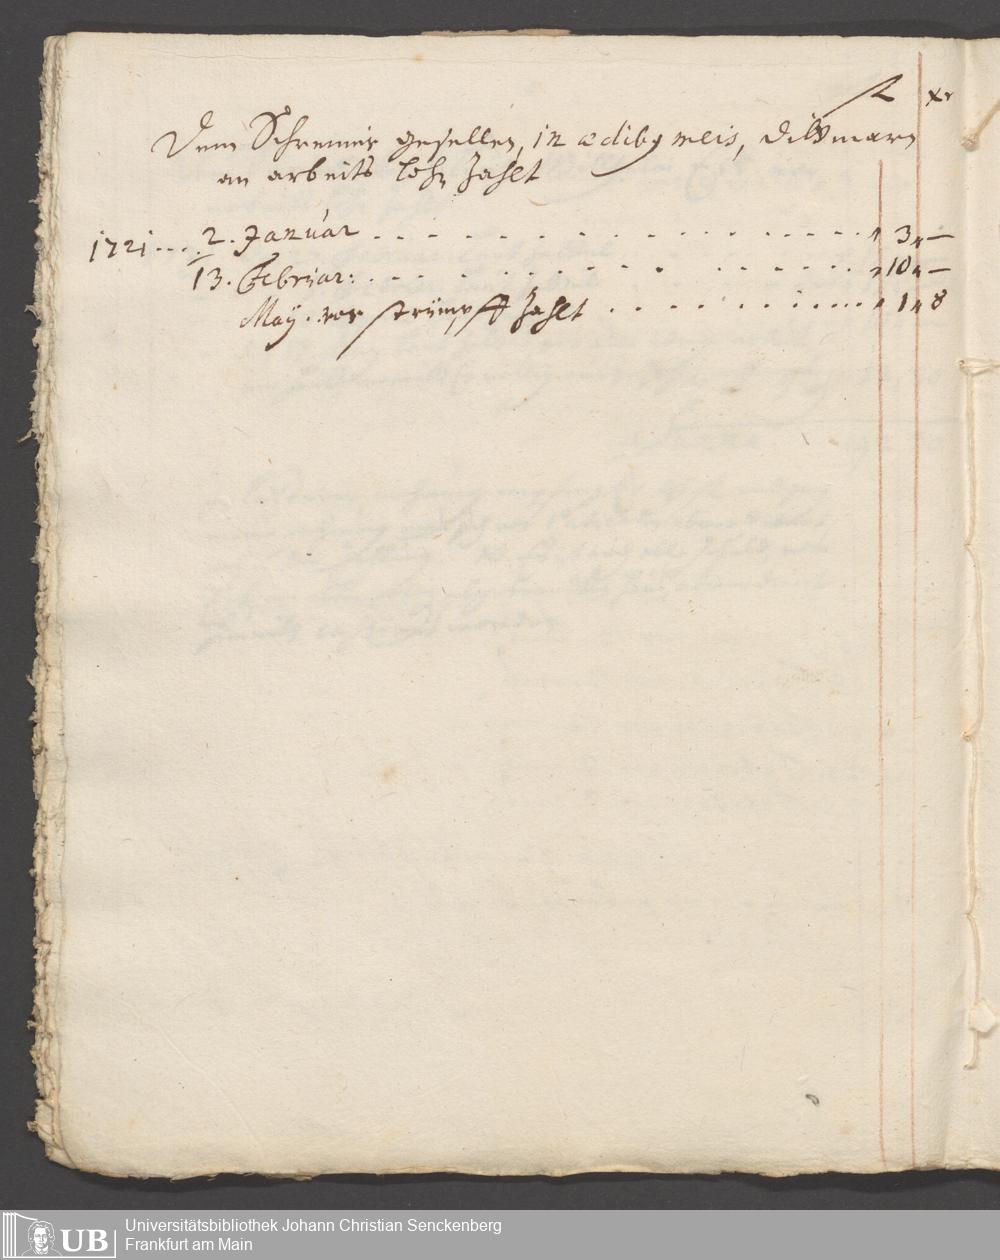 fl xr
Dem Schreiner gesellen, in ædibg meis, Dittmarn
an arbeits lohn zahlt
1721... 2. Januar . . . . . . . . . . . . . . . . . . „ 3 „ —
13. Februar: . . . . . . . . . . . . . . . . . „ 10 „ —
Maÿ. vor strümpff zahlt . . . . . . . . . . . „ 1 „ 8
UB
Universitätsbibliothek Johann Christian Senckenberg
Frankfurt am Main